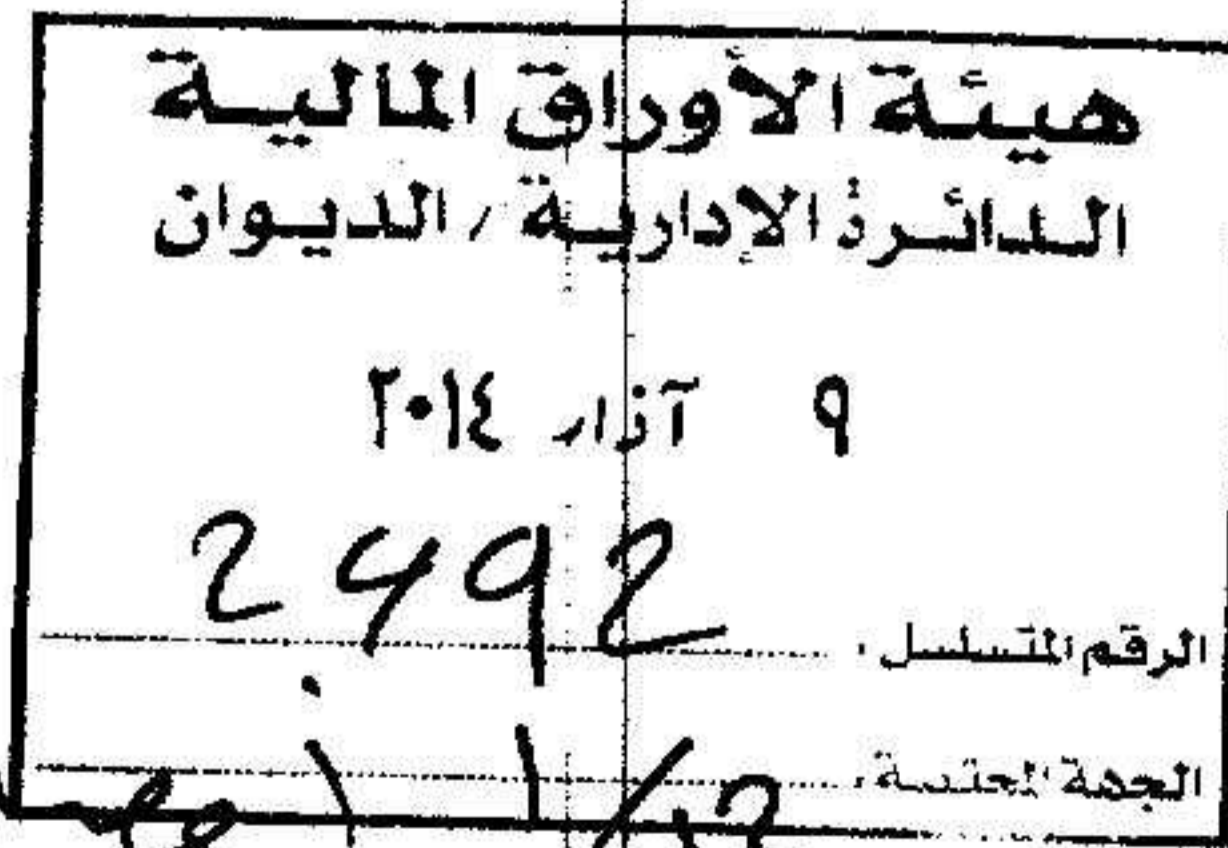 هيئة الأوراق المالية
الدائرة الإدارية / الديوان
٩ آذار ٢٠١٤
الرقم المتسلسل: 2992
الجهة المختصة: